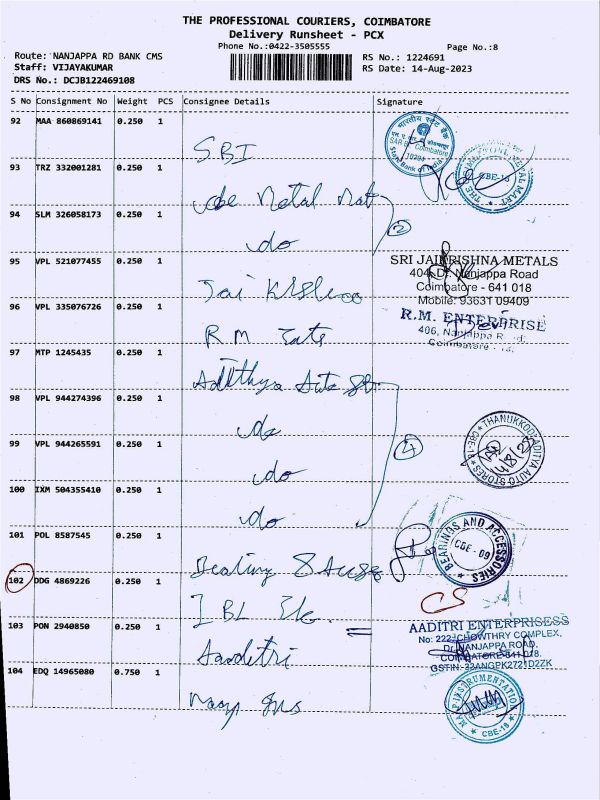 THE PROFESSIONAL COURIERS, COIMBATORE
Delivery Runsheet - PCX
Phone No.:0422-3505555
Page No.:8
Route: NANJAPPA RD BANK CMS
RS No.: 1224691
Staff: VIJAYAKUMAR
RS Date: 14-Aug-2023
DRS No.: DCJB122469108
S No Consignment No Weight PCS Consignee Details Signature
92 MAA 860869141 0.250 1
SBI
भारतीय स्टेट बैंक
Coimbatore
State Bank of India
93 TRZ 332001281 0.250 1
cbe Metal Mat
METAL MART
CBE-18
94 SLM 326058173 0.250 1
do
2
95 VPL 521077455 0.250 1
Jai
SRI JAIKRISHNA METALS
404, Dr. Nanjappa Road
Coimbatore - 641 018
Mobile: 93631 09409
96 VPL 335076726 0.250 1
R M
R.M. ENTERPRISE
406, Nanjappa
Coimbatore
97 MTP 1245435 0.250 1
Adithya Auto
98 VPL 944274396 0.250 1
do
4
THANUKKODI ADITYA AUTO STORES
CBE-18
14/8/23
99 VPL 944265591 0.250 1
do
100 IXM 504355410 0.250 1
do
101 POL 8587545 0.250 1
Bearing &
BEARINGS AND ACCESSORIES
CBE - 09
102 DDG 4869226 0.250 1
CS
103 PON 2940850 0.250 1
Aaditri
AADITRI ENTERPRISESS
No: 222, CHOWTHRY COMPLEX,
Dr. NANJAPPA ROAD,
COIMBATORE-641 018.
104 EDQ 14965080 0.750 1
INSTRUMENTATION
CBE-18